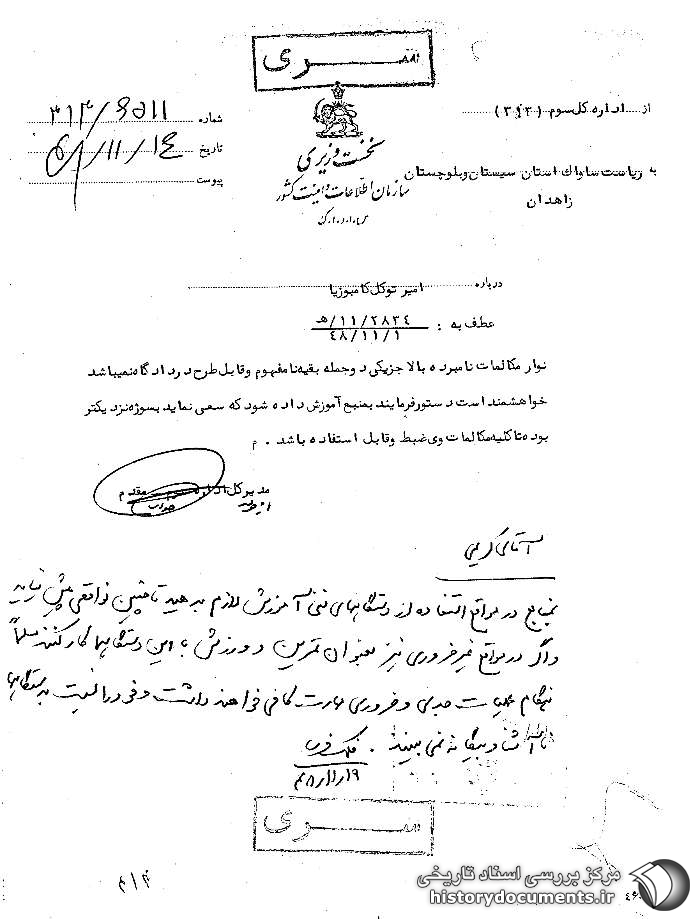 سری
از ..... اداره کل سوم (۳۱۲)
شماره ۳۱۲/۶۵۱۱
تاریخ
پیوست
نخست وزیری
سازمان اطلاعات و امنیت کشور
س.ا.و.ا.ک
به ریاست ساواک استان سیستان و بلوچستان
زاهدان
درباره امیر توکل کامبوزیا
عطف به : ۲۸۳٤/۱۱/هـ
٤۸/۱۱/۱
نوار مکالمات نامبرده بالا جزیکی دوجمله بقیه نامفهوم وقابل طرح دردادگاه نمیباشد
خواهشمند است دستورفرمایند بمنبع آموزش داده شود که سعی نماید بسوژه نزدیکتر
بوده تا کلیه مکالمات وی ضبط وقابل استفاده باشد . م
مدیرکل اداره سوم مقدم
آقای کریمی
بمنابع در مواقع استفاده از دستگاههای فنی آموزش لازم بدهید تا چنین نواقصی پیش نیاید
و اگر در مواقع غیر فروری نیز بعنوان تمرین و ورزش با این دستگاهها کار کنند مسلماً
هنگام عملیات جدی و فروری مهارت کافی خواهند داشت و خود را نسبت بدستگاهها
ناآشنا و بیگانه نمی بینند .
۴۸/۱۱/۱۹
سری
۳۱۲
مرکز بررسی اسناد تاریخی
historydocuments.ir